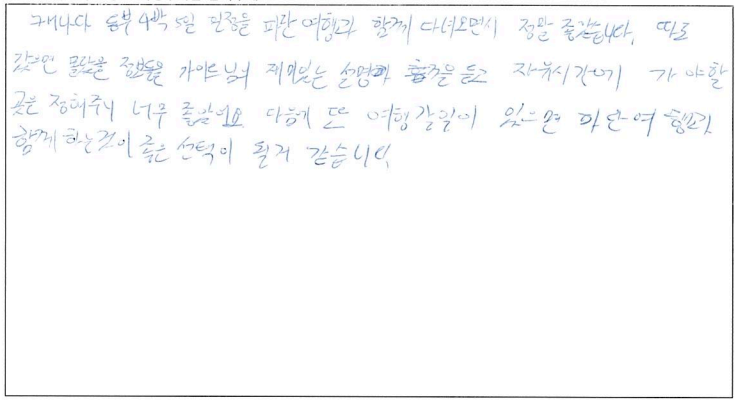 캐나다 동부 4박 5일 일정을 파란 여행과 함께 다녀오면서 정말 좋았습니다. 따로
갔으면 몰랐을 정보들을 가이드님의 재미있는 설명과 을 듣고 자유시간에 가야할
곳을 정해주니 너무 좋았어요 다음에 또 여행갈일이 있으면 파란여행과
함께 하는것이 좋은 선택이 될거 같습니다.